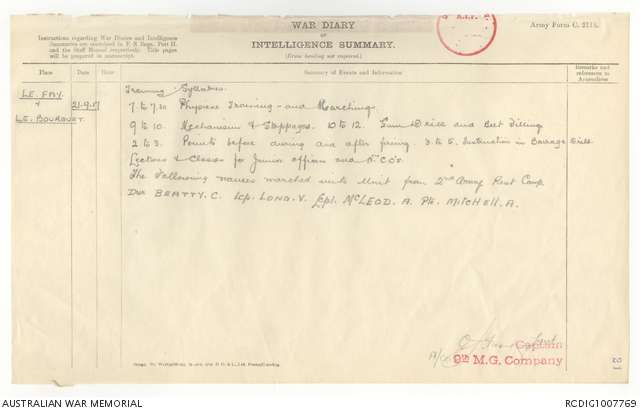 WAR DIARY
OF
INTELLIGENCE SUMMARY.
(Erase heading not required.)
Army Form C. 2118.
Instructions regarding War Diaries and Intelligence
Summaries are contained in F. S. Regs., Part II.
and the Staff Manual respectively. Title pages
will be prepared in manuscript.
Place
Date
Hour
Summary of Events and Information
Remarks and
references to
Appendices
LE. FAY.
+
LE. BOURQUET
21-9-17
Training Syllabus.
7 to 7.30 Physical Training and Marching.
9 to 10. Mechanism & Stoppages. 10 to 12. Gun Drill and Belt Filling
2 to 3. Points before during and after firing. 3 to 5. Instruction in Barrage Drill
Lectures & Classes for Junior officers and N.C.O's.
The following names marched into Unit from 2nd Army Rest Camp
Dvr BEATTY. C. LONG. V. McLEOD. A. Pte. MITCHELL. A.
Captain
9th M.G. Company
21
AUSTRALIAN WAR MEMORIAL
RCDIG1007769